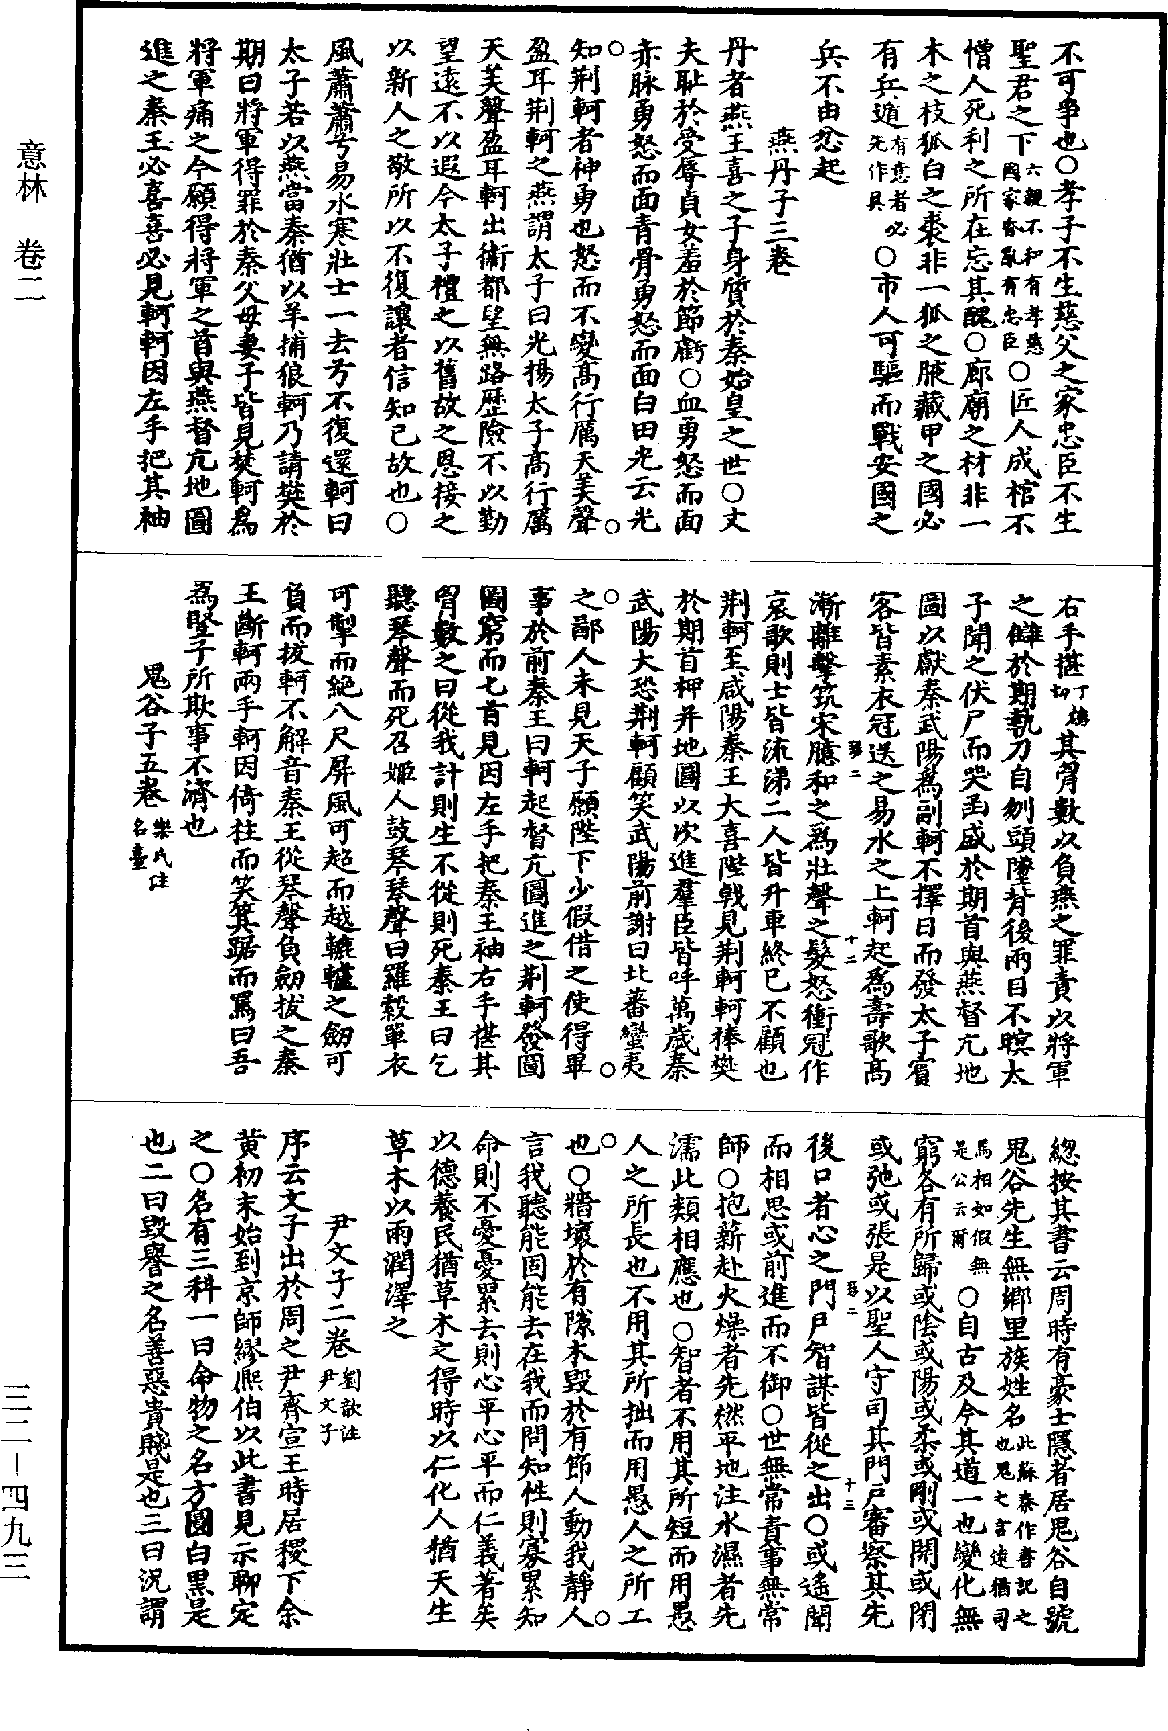 意林　卷二
不可爭也○孝子不生慈父之家忠臣不生
聖君之下六親不和有孝慈國家昏亂有忠臣○匠人成棺不
憎人死利之所在忘其醜○廊廟之材非一
木之枝狐白之裘非一狐之腋藏甲之國必
有兵遁有意者必先作具○市人可驅而戰安國之
兵不由忿起
燕丹子三卷
丹者燕王喜之子身質於秦始皇之世○丈
夫恥於受辱貞女羞於節虧○血勇怒而面
赤脉勇怒而面青骨勇怒而面白田光云光
知荆軻者神勇也怒而不變○高行厲天美聲
盈耳荆軻之燕謂太子曰光揚太子高行厲
天美聲盈耳軻出衞都望無路歷險不以勤
望遠不以遐今太子禮之以舊故之恩接之
以新人之敬所以不復讓者信知已故也○
風蕭蕭兮易水寒壯士一去兮不復還軻曰
太子若以燕當秦猶以羊捕狼軻乃請樊於
期曰將軍得罪於秦父母妻子皆見焚軻爲
將軍痛之今願得將軍之首與燕督亢地圖
進之秦王必喜喜必見軻軻因左手把其袖
右手揕丁鴆切其胷數以負燕之罪責以將軍
之讎於期執刀自刎頭墮背後兩目不瞑太
子聞之伏尸而哭函盛於期首與燕督亢地
圖以獻秦武陽爲副軻不擇日而發太子賓
客皆素衣冠送之易水之上軻起爲壽歌高
漸離擊筑宋臆和之爲壯聲之髮怒衝冠作
哀歌則士皆流涕二人皆升車終已不顧也
荆軻至咸陽秦王大喜陛戟見荆軻軻捧樊
於期首柙并地圖以次進羣臣皆呼萬歲秦
武陽大恐荆軻顧笑武陽前謝曰北蕃蠻夷
之鄙人未見天子願陛下少假借之使得畢
事於前秦王曰軻起督亢圖進之荆軻發圖
圖窮而匕首見因左手把秦王袖右手揕其
胷數之曰從我計則生不從則死秦王曰乞
聽琴聲而死召姬人鼓琴琴聲曰羅縠單衣
可掣而絕八尺屏風可超而越轆轤之劒可
負而拔軻不解音秦王從琴聲負劒拔之秦
王斷軻兩手軻因倚柱而笑箕踞而罵曰吾
爲豎子所欺事不濟也
鬼谷子五卷樂氏注名臺
總按其書云周時有豪士隱者居鬼谷自號
鬼谷先生無鄉里族姓名此蘇秦作書記之也鬼之言遠猶司馬相如假無是公云爾○自古及今其道一也變化無
窮各有所歸或陰或陽或柔或剛或開或閉
或弛或張是以聖人守司其門戸審察其先
後口者心之門戸智謀皆從之出○或遙聞
而相思或前進而不御○世無常責事無常
師○抱薪赴火燥者先燃平地注水濕者先
濡此類相應也○智者不用其所短而用愚
人之所長也不用其所拙而用愚人之所工
也○牆壞於有隙木毀於有節○人動我靜人
言我聽能固能去在我而問知性則寡累知
命則不憂憂累去則心平心平而仁義著矣
以德養民猶草木之得時以仁化人猶天生
草木以雨潤澤之
尹文子二卷劉歆注尹文子
序云文子出於周之尹齊宣王時居稷下余
黄初末始到京師繆熙伯以此書見示聊定
之○名有三科一曰命物之名方圓白黑是
也二曰毀譽之名善惡貴賤是也三曰況謂
三二－四九三